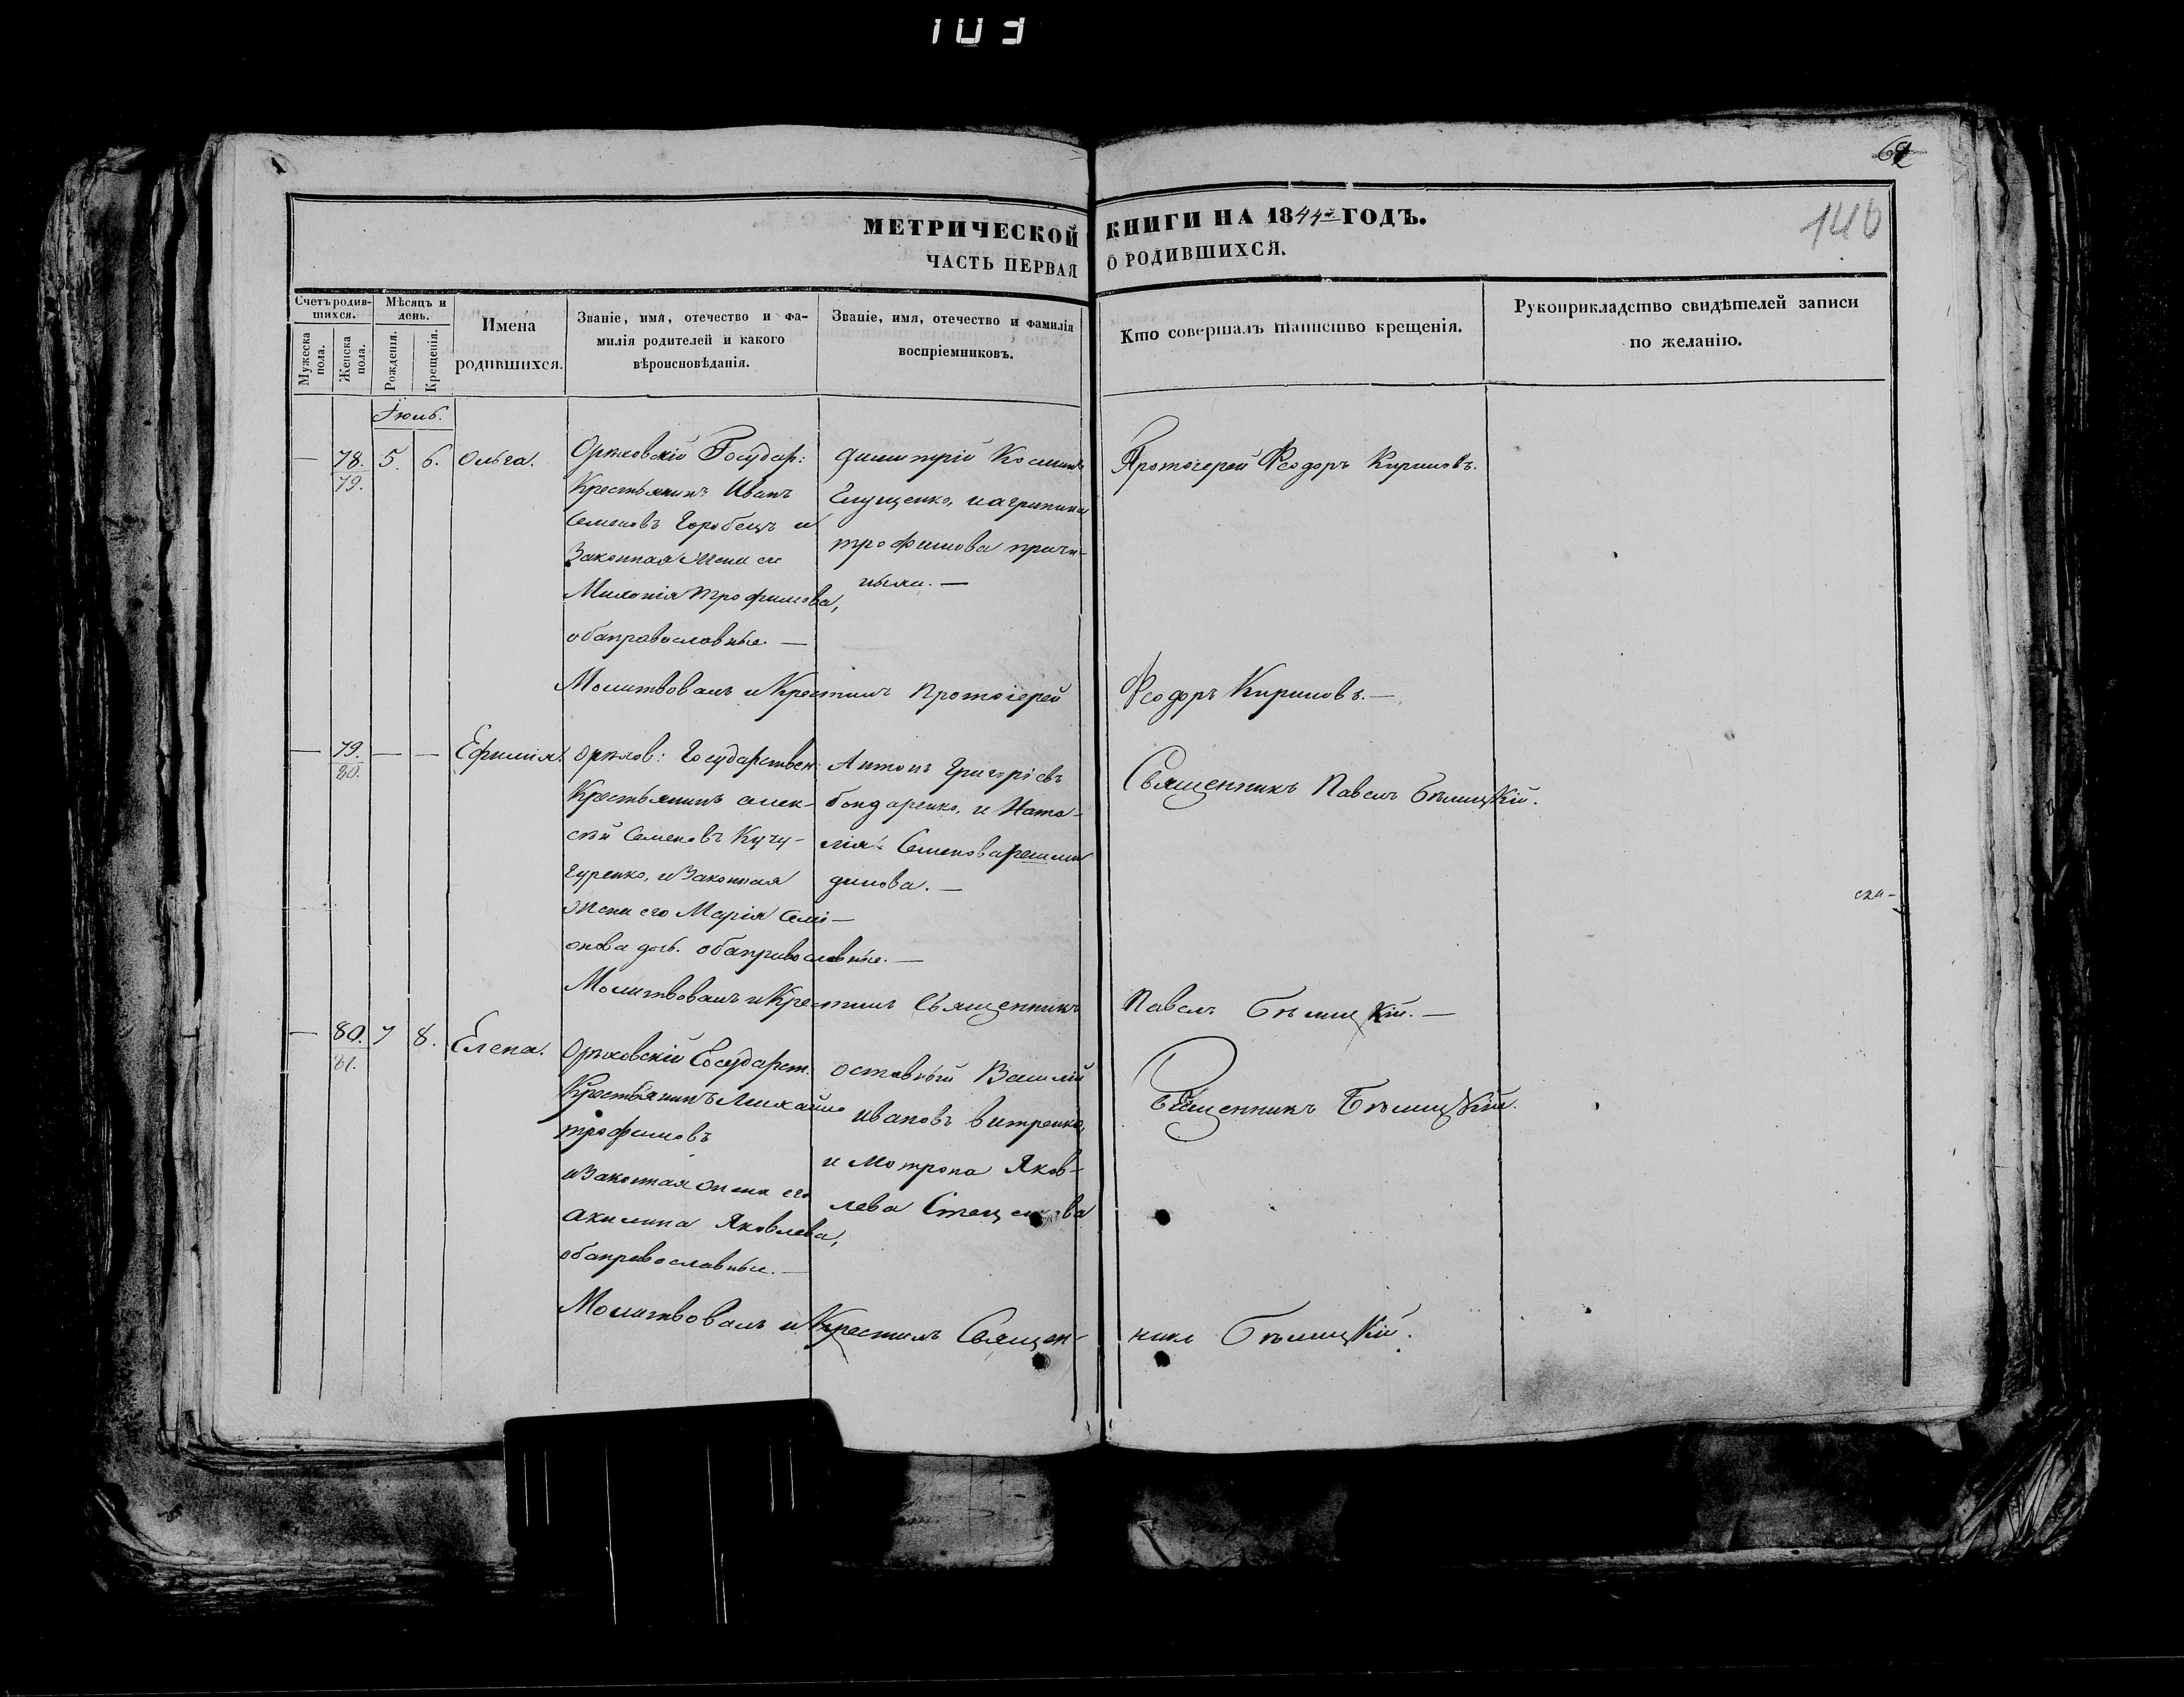 103
МЕТРИЧЕСКОЙ КНИГИ НА 1844й ГОДЪ.
ЧАСТЬ ПЕРВАЯ О РОДИВШИХСЯ.
140
Счетъ родив-
шихся.
Мужеска пола.
Женска пола.
Мѣсяцъ и
день.
Рожденія.
Крещенія.
Имена
родившихся.
Званіе, имя, отечество и фа-
милія родителей и какого
вѣроисповѣданія.
Званіе, имя, отечество и фамилія
воспріемниковъ.
Кто совершалъ таинство крещенія.
Рукоприкладство свидѣтелей записи
по желанію.
Іюль.
— 78. 5. 6. Ольга.
79.
Орѣховскій Государ:
Крестьянинъ Иванъ
Семеновъ Горобецъ и
Законная Жена его
Трофимова,
обаправославные. —
Димитрій
и агрипина
трофимова
Протоіерей Феодоръ Кириловъ.
Молитвовалъ и Крестилъ Протоіерей Феодоръ Кириловъ. —
— 79. — — Ефимія.
80.
Орѣхов: Государствен:
Крестьянинъ алек-
сѣй Семеновъ Кучу-
гуренко, и Законная
Жена его Марія Сими-
онова дочь. обаправославные. —
Антонъ Григоріевъ
бондаренко, и Ната-
лія Семенова
Священникъ Павелъ Бѣлицкій.
Молитвовалъ и Крестилъ Священникъ Павелъ Бѣлицкій. —
— 80. 7 8. Елена.
81.
Орѣховскій Государст.
Крестьянинъ Михайло
трофимовъ
и Законная Жена его
акилина Яковлева,
обаправославные. —
Василій
Ивановъ витренко,
и Мотрона Яков-
лева Стеценкова
Священникъ Бѣлицкій.
Молитвовалъ и Крестилъ Священ- никъ Бѣлицкій.